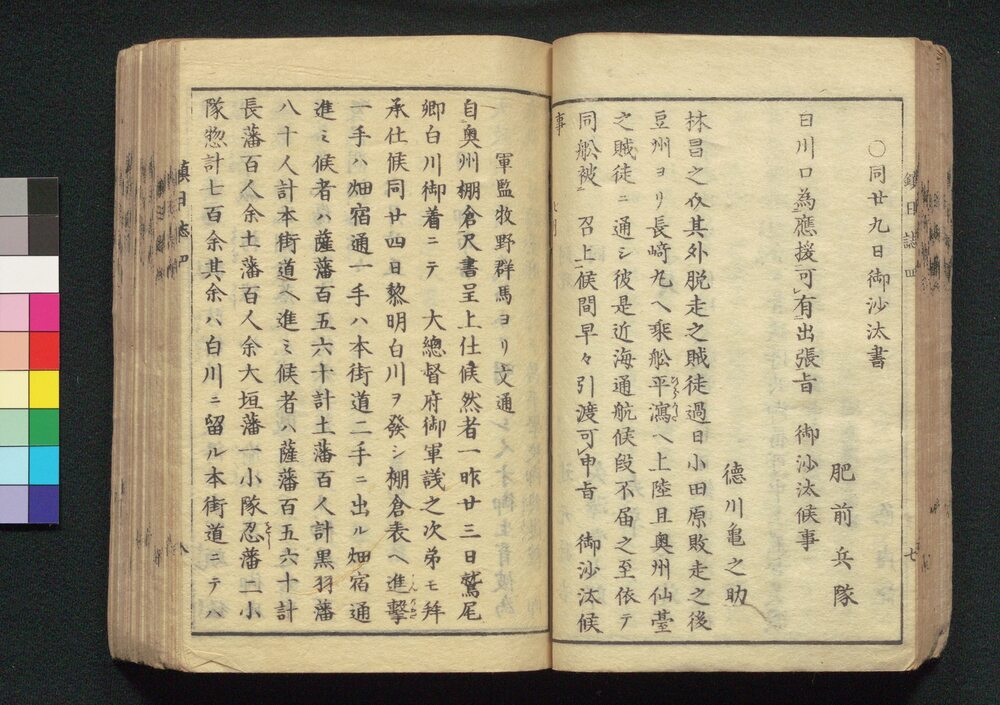 鎮日誌四
七
○同廿九日御沙汰書
肥前兵隊
白川口為應援可有出張旨 御沙汰候事
德川亀之助
林昌之介其外脱走之賊徒過日小田原敗走之後
豆州ヨリ長﨑丸ヘ乘舩平潟ヘ上陸且奥州仙臺
之賊徒ニ通シ彼是近海通航候段不届之至依テ
同舩被 召上候間早々引渡可申旨 御沙汰候
事
軍監牧野群馬ヨリ文通
自奥州棚倉尺書呈上仕候然者一昨廿三日鷲尾
卿白川御着ニテ 大總督府御軍議之次弟モ拜
承仕候同廿四日黎明白川ヲ發シ棚倉表ヘ進擊
一手ハ畑宿通一手ハ本街道二手ニ出ル畑宿通
進ミ候者ハ薩藩百五六十計土藩百人計黒羽藩
八十人計本街道ヘ進ミ候者ハ薩藩百五六十計
長藩百人余土藩百人余大垣藩一小隊忍藩二小
隊惣計七百余其余ハ白川ニ留ル本街道ニテハ
鎮日志四
八